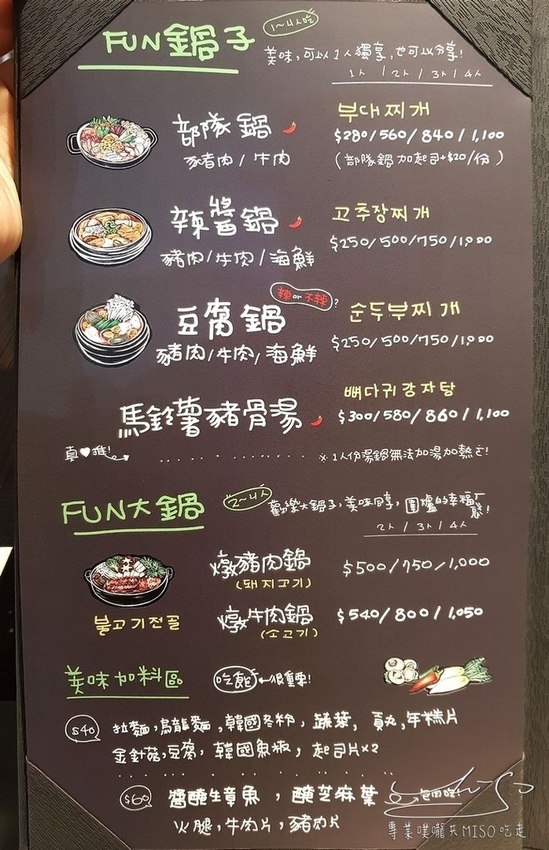 FUN鍋子 1~4人吃
美味,可以1人獨享,也可以分享!
1人 / 2人 / 3人 / 4人
部隊鍋 부대찌개
豬肉 / 牛肉 $280/560/840/1,100
(部隊鍋加起司+$20/份)
辣醬鍋 고추장찌개
豬肉/牛肉/海鮮 $250/500/750/1,000
辣or不辣?
豆腐鍋 순두부찌개
豬肉/牛肉/海鮮 $250/500/750/1,000
馬鈴薯豬骨湯 뼈다귀감자탕
$300/580/860/1,100
真♥推! ※1人份湯鍋無法加湯加熱ㄛ!
FUN大鍋 2~4人
歡樂大鍋子,美味同享,圍爐的幸福感!
2人 / 3人 / 4人
燉豬肉鍋 $500/750/1,000
(돼지고기)
불고기전골 燉牛肉鍋 $540/800/1,050
(소고기)
美味加料區 吃飽←很重要!
$40 拉麵,烏龍麵,韓國冬粉,蔬菜,貢丸,年糕片
金針菇,豆腐,韓國魚板,起司片×2
$60 醬醃生章魚,醃芝麻葉
火腿,牛肉片,豬肉片
專業噗嚨共MISO吃走